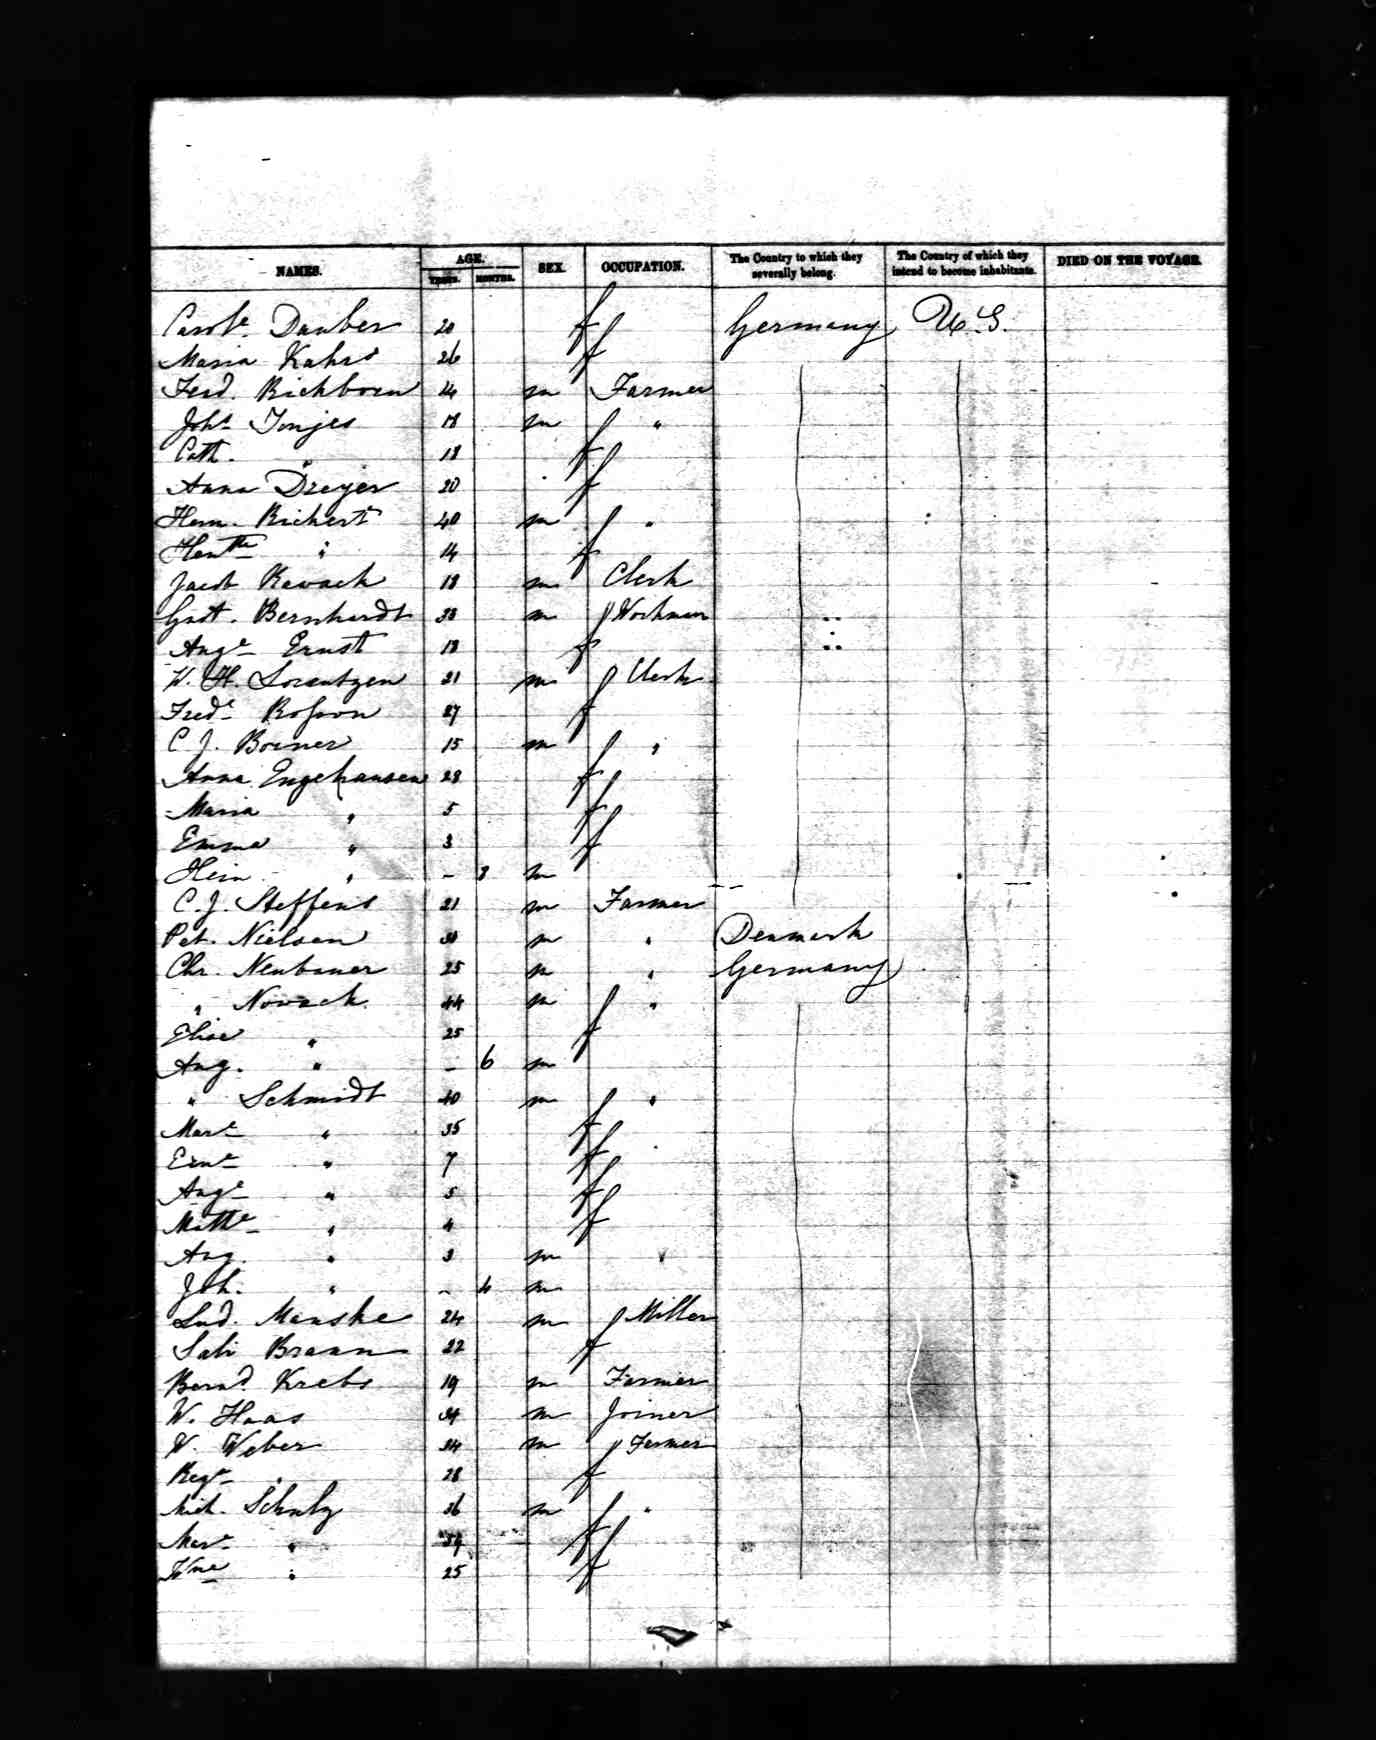 NAMES. AGE. YEARS. MONTHS. SEX. OCCUPATION. The Country to which they severally belong. The Country of which they intend to become inhabitants. DIED ON THE VOYAGE.
Carole. Dauber 20 f Germany U.S.
Maria Kahrs 26 f
Ferd. Richborn 14 m Farmer
Johs. Tonjes 18 m "
Cath. " 18 f
Anna Dreyer 20 f
Herm. Richert 40 m "
Hentte " 14 f
Jacob Kavack 18 m Clerk
Gott. Bernhardt 33 m Workman
Auge. Ernst 18 f
W. H. Lorentzen 21 m Clerk
Frede. 27 f
C. J. Borner 15 m "
Anna Engehausen 28 f
Maria " 5 f
Emma " 3 f
Hein. " - 8 m
C. J. Steffens 21 m Farmer
Pet. Nielsen m " Denmark
Chr. Neubauer 25 m " Germany
" Novack 44 m "
Elise " 25 f
Aug. " - 6 m
" Schmidt 40 m "
Mare. " 35 f
Erne. " 7 f
Auge. " 5 f
Mathe. " 4 f
Aug. " 3 m
Joh. " - 4 m
Lud. Manske 24 m Miller
Sabi Braun 22 f
Bernd. Krebs 19 m Farmer
W. Haas 34 m Joiner
W. Weber 34 m Farmer
" 28 f
Mich. Schulz 36 m "
Mare. " f
Wme " 25 f